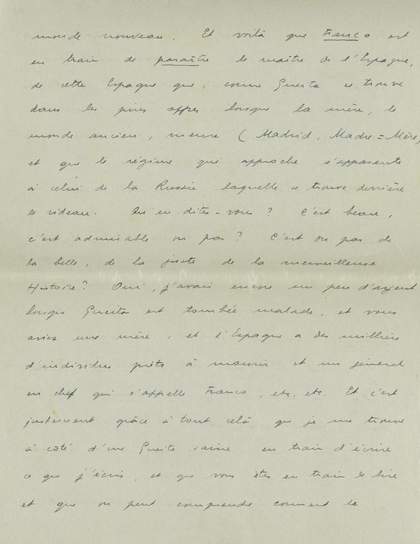 monde nouveau. Et voilà que Franco est
en train de paraître le maître de l'Espagne,
de cette Espagne que, comme Guerta se trouve
dans les jours après lorsque la mère, le
monde ancien, meure (Madrid, Madre = Mère)
et que le régime que approche s'apparente
à celui de la Russie laquelle se trouve derrière
le rideau. Qu'en dites-vous? C'est beau,
c'est admirable ou pas? C'est ou pas de
la belle, de la juste de la merveilleuse
Histoire? Oui, j'avais encore un peu d'argent
lorsque Guerta est tombée malade, et vous
aviez une mère, et l'Espagne a des milliers
d'indivisibles prêts à mourir et un général
en chef qui s'appelle Franco, etc, etc. Et c'est
justement grâce à tout celà que je me trouve
à coté d'une Guerta saine en train d'écrire
ce que j'écris, et que vous êtes en train de lire
et que on peut comprendre comment le